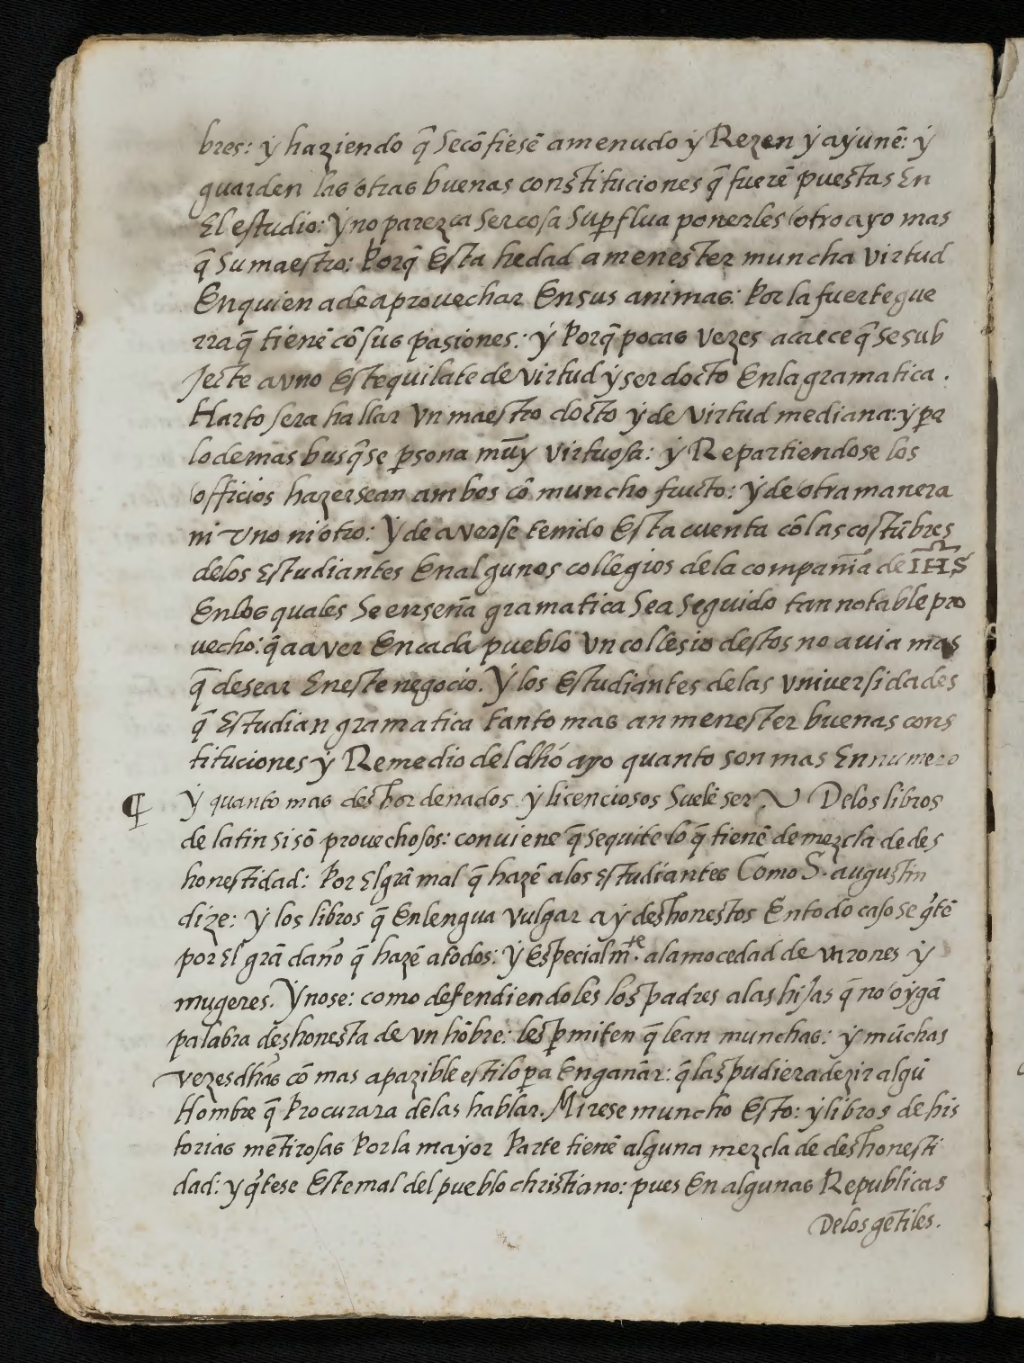 bres: ÿ haziendo q̃ Secõfiesẽ amenudo ÿ Rezen ÿ aÿunẽ: ÿ
guarden las otras buenas constituciones q̃ fuerẽ puestas En
El estudio: ÿ no parezca Ser cosa Suꝑflua ponerles otro ayo mas
q̃ Su maestro: Porq̃ Esta hedad a menester muncha virtud
En quien a de aprouechar En sus animas: Por la fuerte gue
rra q̃ tienẽ cõ sus pasiones: ÿ Porq̃ pocas vezes acaece q̃ se sub
jecte a vno Este quilate de virtud ÿ ser docto En la gramatica.
Harto sera hallar vn maestro docto ÿ de virtud mediana: ÿ pa
lo demas busq̃se ꝑsona muy virtuosa: ÿ Repartiendose los
officios hazersean ambos cõ muncho fructo: ÿ de otra manera
ni vno ni otro: ÿ de averse tenido Esta cuenta cõ las costũbres
de los Estudiantes En algunos collegios de la compañia de IHS
En los quales Se enseña gramatica Sea Seguido tan notable pro
uecho: q̃ a aver En cada pueblo vn collegio destos no auia mas
q̃ desear En este negocio. ÿ los Estudiantes de las vniversidades
q̃ Estudian gramatica tanto mas an menester buenas cons
tituciones ÿ Remedio del dho ayo quanto son mas En numero
¶ ÿ quanto mas deshordenados ÿ licenciosos Suelẽ ser. De los libros
de latin si sõ prouechosos: conuiene q̃ se quite lo q̃ tienẽ de mezcla de des
honestidad: Por El grã mal q̃ hazẽ a los Estudiantes Como S. augustin
dize: ÿ los libros q̃ En lengua vulgar aÿ deshonestos En todo caso se q̃tẽ
por El grã daño q̃ hazẽ a todos: ÿ Especialm.te a la mocedad de varones ÿ
mugeres. ÿ no se: como defendiendoles los padres a las hijas q̃ no oÿgã
palabra deshonesta de vn hõbre: les ꝑmiten q̃ lean munchas: ÿ mũchas
vezes dhas cõ mas apazible estilo pa Engañar: q̃ las pudiera dezir algũ
Hombre q̃ Procurara de las hablar. Mirese muncho Esto: ÿ libros de his
torias mẽtirosas Por la mayor Parte tienẽ alguna mezcla de deshonesti
dad: ÿ q̃tese Este mal del pueblo christiano: pues En algunas Republicas
De los gẽtiles.